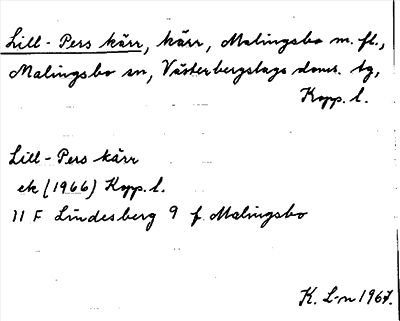 Lill-Pers kärr, kärr, Malingsbo m. fl.,
Malingsbo sn, Västerbergslags doms. tg,
Kopp. l.
Lill-Pers kärr
ek (1966) Kopp. l.
11 F Lindesberg 9 f Malingsbo
K. L-n 1967.